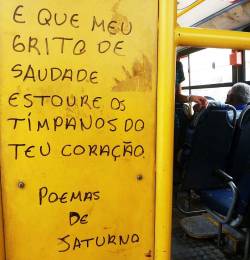 E QUE MEU
GRITO DE
SAUDADE
ESTOURE OS
TÍMPANOS DO
TEU CORAÇÃO.
POEMAS
DE
SATURNO